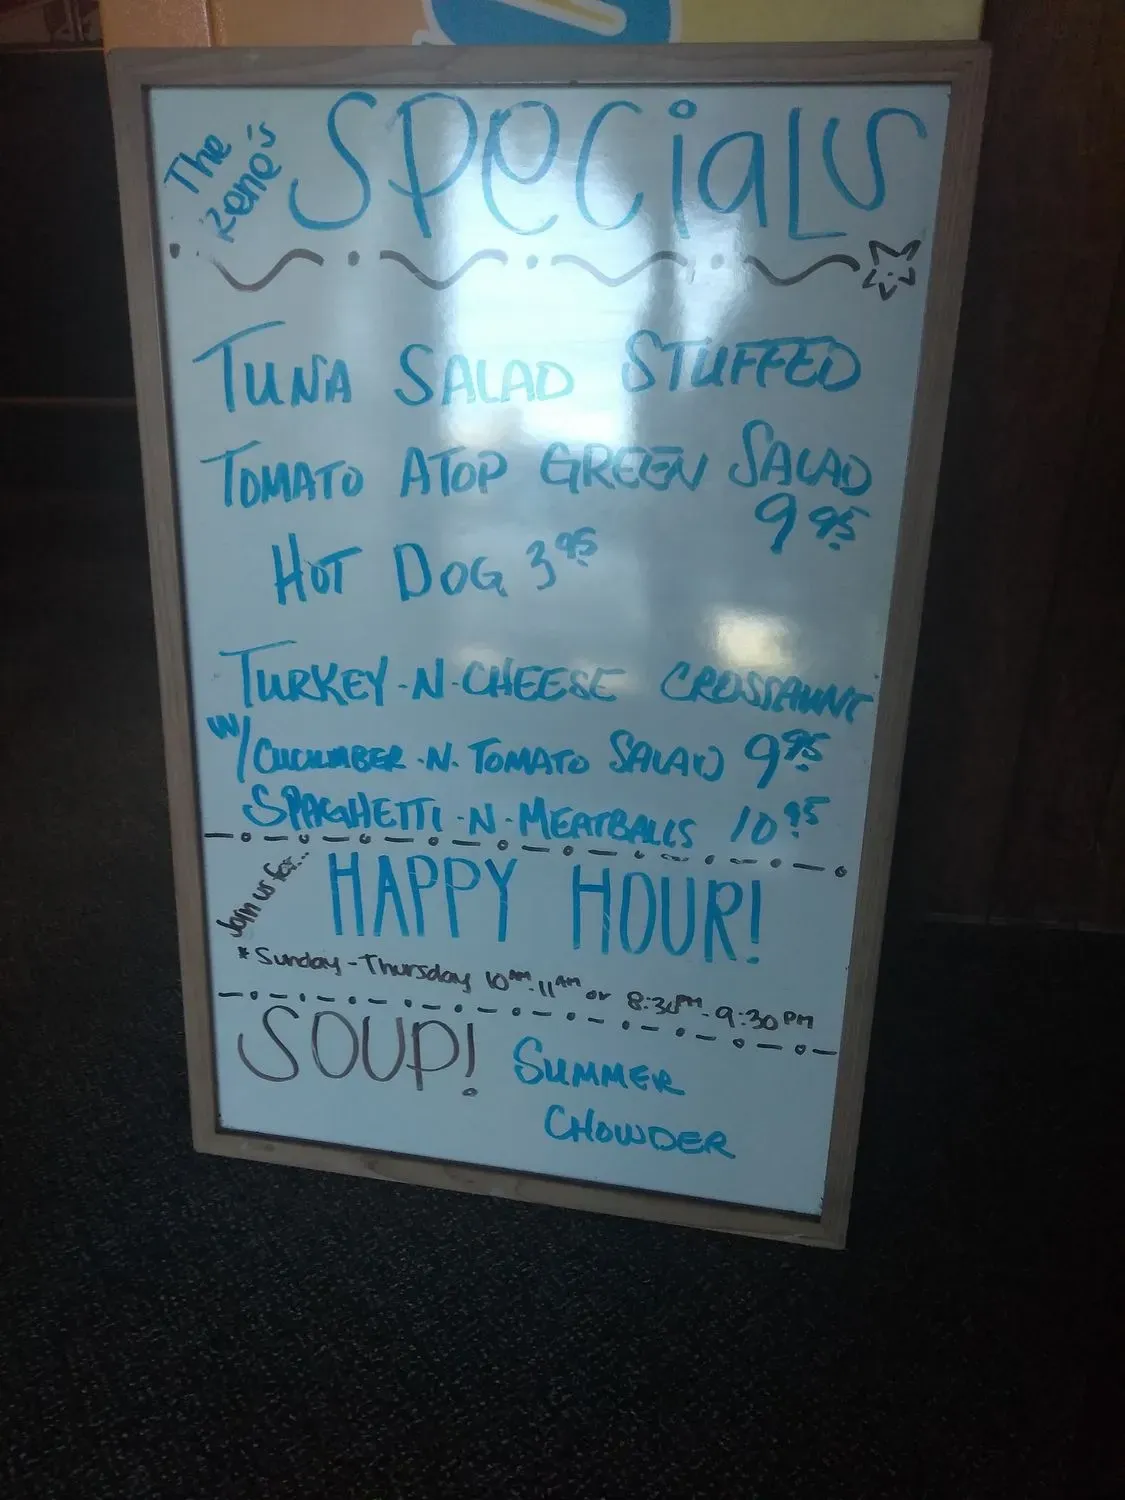 The Rene's
SPeCiaLS
TUNA SALAD STUFFED
TOMATO ATOP GREEN SALAD
9 95
HOT DOG 3 95
TURKEY-N-CHEESE CROSSAUNT
W/CUCUMBER-N-TOMATO SALAD 9 95
SPAGHETTI-N-MEATBALLS 10 95
Join us for...
HAPPY HOUR!
*Sunday-Thursday 10AM-11AM or 8:30PM-9:30PM
SOUP! SUMMER
CHOWDER